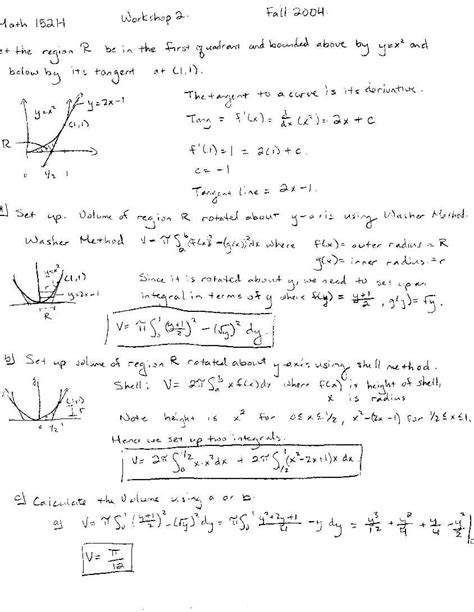 Math 152H Workshop 2. Fall 2004
et the region R be in the first quadrant and bounded above by y=x² and
below by its tangent at (1,1).
The tangent to a curve is its derivative.
y=x² y=2x-1
(1,1)
Tang = f'(x) = d/dx (x²) = 2x + c
R
f'(1) = 1 = 2(1) + c.
c = -1
0 1/2 1
Tangent line = 2x-1.
a) Set up. Volume of region R rotated about y-axis using Washer Method.
Washer Method V= π∫ (f(x))²-(g(x))² dx where f(x) = outer radius = R
g(x) = inner radius = r
(1,1)
y=2x-1
R
Since it is rotated about y, we need to set up an
integral in terms of y where f(y) = (y+1)/2, g(y) = √y.
V= π∫₀¹ ((y+1)/2)² - (√y)² dy.
b) Set up volume of region R rotated about y-axis using shell method.
Shell: V= 2π∫ x f(x) dx where f(x) is height of shell,
x is radius
(1,1)
0 1/2
Note height is x² for 0≤x≤1/2, x²-(2x-1) for 1/2≤x≤1.
Hence we set up two integrals.
V= 2π∫₀^1/2 x·x² dx + 2π∫_1/2^1 (x²-2x+1)x dx
c) Calculate the volume using a or b.
a) V= π∫₀¹ ((y+1)/2)² - (√y)² dy = π∫₀¹ (y²+2y+1)/4 - y dy = y³/12 + y²/4 + y/4 - y²/2
V= π/12